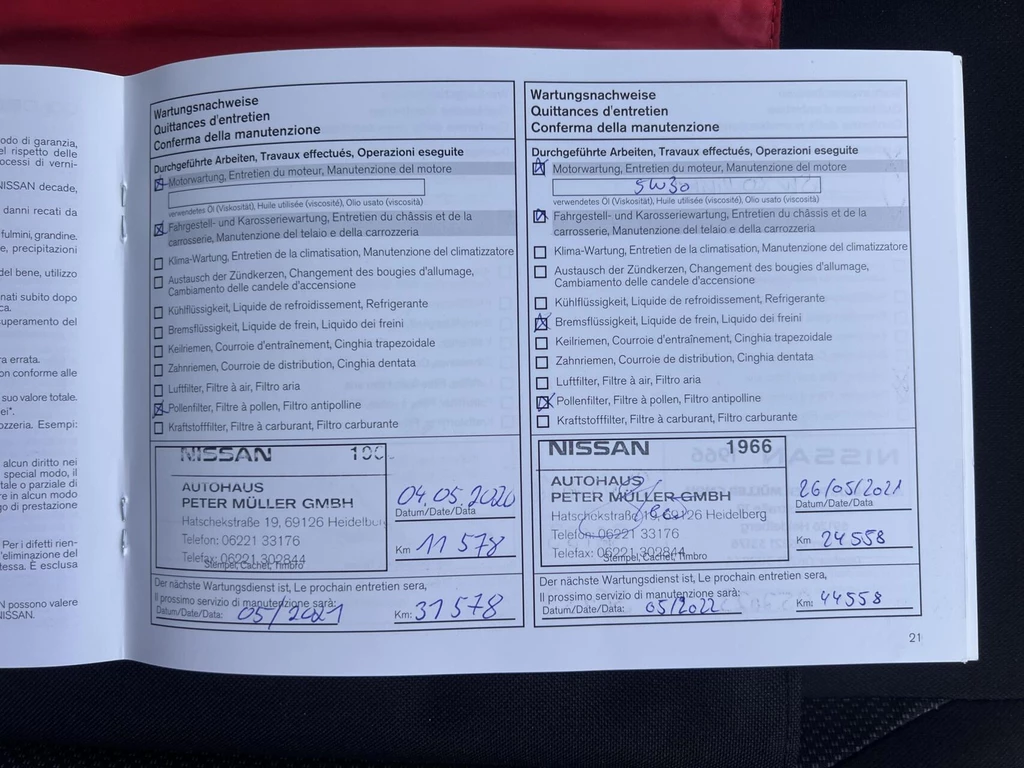 odo di garanzia,
el rispetto delle
ocessi di verni-
NISSAN decade,
danni recati da
fulmini, grandine.
e, precipitazioni
del bene, utilizzo
nati subito dopo
ca.
uperamento del
ra errata.
on conforme alle
suo valore totale.
ei*.
ozzeria. Esempi:
alcun diritto nei
special modo, il
tale o parziale di
re in alcun modo
go di prestazione
Per i difetti rien-
'eliminazione del
tessa. È esclusa
N possono valere
NISSAN.
Wartungsnachweise
Quittances d'entretien
Conferma della manutenzione
Durchgeführte Arbeiten, Travaux effectués, Operazioni eseguite
Motorwartung, Entretien du moteur, Manutenzione del motore
verwendetes Öl (Viskosität), Huile utilisée (viscosité), Olio usato (viscosità)
Fahrgestell- und Karosseriewartung, Entretien du châssis et de la
carrosserie, Manutenzione del telaio e della carrozzeria
Klima-Wartung, Entretien de la climatisation, Manutenzione del climatizzatore
Austausch der Zündkerzen, Changement des bougies d'allumage,
Cambiamento delle candele d'accensione
Kühlflüssigkeit, Liquide de refroidissement, Refrigerante
Bremsflüssigkeit, Liquide de frein, Liquido dei freini
Keilriemen, Courroie d'entraînement, Cinghia trapezoidale
Zahnriemen, Courroie de distribution, Cinghia dentata
Luftfilter, Filtre à air, Filtro aria
Pollenfilter, Filtre à pollen, Filtro antipolline
Kraftstofffilter, Filtre à carburant, Filtro carburante
NISSAN
AUTOHAUS
PETER MÜLLER GMBH
Hatschekstraße 19, 69126 Heidelbu
Telefon: 06221 33176
Telefax: 06221 302844
Stempel, Cachet, Timbro
04.05.2020
Datum/Date/Data
Km 11 578
Der nächste Wartungsdienst ist, Le prochain entretien sera,
Il prossimo servizio di manutenzione sarà:
Datum/Date/Data: 05/2021 Km: 31 578
Wartungsnachweise
Quittances d'entretien
Conferma della manutenzione
Durchgeführte Arbeiten, Travaux effectués, Operazioni eseguite
Motorwartung, Entretien du moteur, Manutenzione del motore
5W30
verwendetes Öl (Viskosität), Huile utilisée (viscosité), Olio usato (viscosità)
Fahrgestell- und Karosseriewartung, Entretien du châssis et de la
carrosserie, Manutenzione del telaio e della carrozzeria
Klima-Wartung, Entretien de la climatisation, Manutenzione del climatizzatore
Austausch der Zündkerzen, Changement des bougies d'allumage,
Cambiamento delle candele d'accensione
Kühlflüssigkeit, Liquide de refroidissement, Refrigerante
Bremsflüssigkeit, Liquide de frein, Liquido dei freini
Keilriemen, Courroie d'entraînement, Cinghia trapezoidale
Zahnriemen, Courroie de distribution, Cinghia dentata
Luftfilter, Filtre à air, Filtro aria
Pollenfilter, Filtre à pollen, Filtro antipolline
Kraftstofffilter, Filtre à carburant, Filtro carburante
NISSAN 1966
AUTOHAUS
PETER MÜLLER GMBH
Hatschekstraße 19, 69126 Heidelberg
Telefon: 06221 33176
Telefax: 06221 302844
Stempel, Cachet, Timbro
26/05/2021
Datum/Date/Data
Km 24 558
Der nächste Wartungsdienst ist, Le prochain entretien sera,
Il prossimo servizio di manutenzione sarà:
Datum/Date/Data: 05/2022 Km: 44558
21